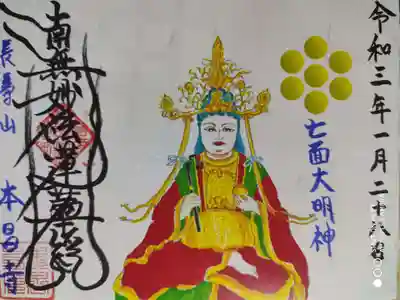 令和三年一月二十八日
七面大明神
南無妙法蓮華経
長寿山 本昌寺